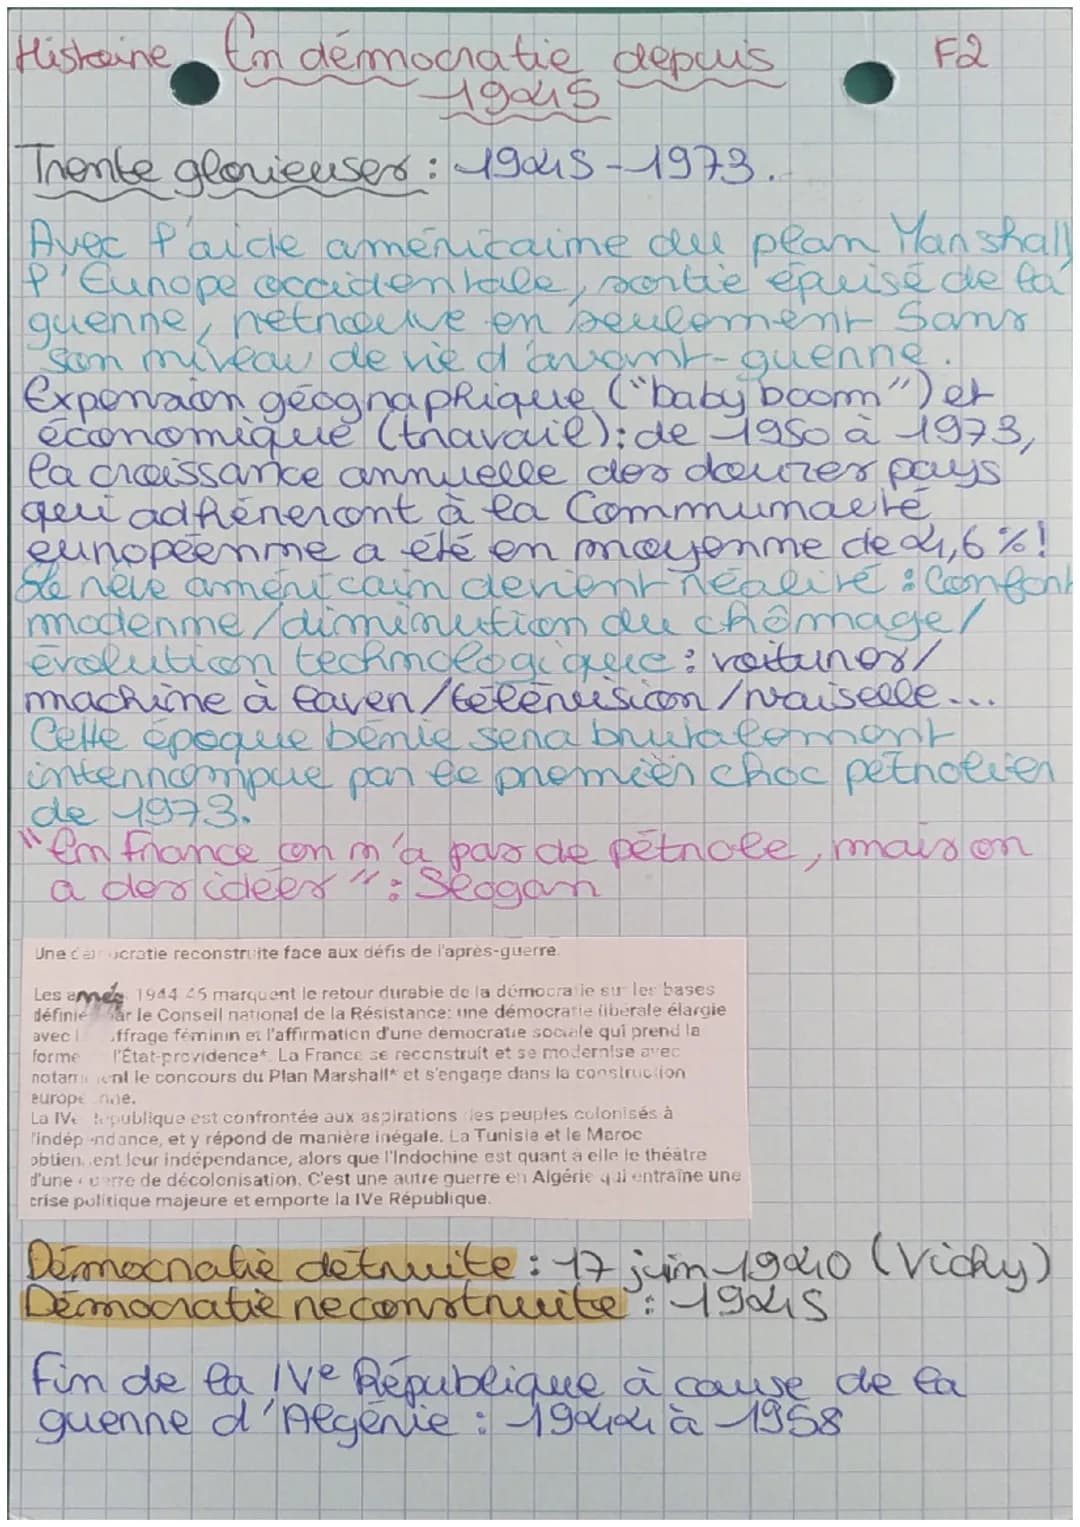 Histoire En démocratie depuis F2
1945
Trente glorieuses : 1945-1973.
Avec l'aide américaine du plan Marshall
l'Europe occidentale, sortie épuisé de la
guerre, retrouve en seulement 5ans
son niveau de vie d'avant-guerre.
Expension géographique ("baby boom") et
économique (travail): de 1950 à 1973,
la croissance annuelle des douzes pays
qui adhéreront à la Communauté
européenne a été en moyenne de 4,6 %!
Le rêve américain devient réalité : Confort
moderne/diminution du chômage/
évolution technologique : voitures/
machine à laver/télévision/vaiselle...
Cette époque bénie sera brutalement
interrompue par le premier choc pétrolier
de 1973.
"En France on n'a pas de pétrole, mais on
a des idées" : Slogan
Une démocratie reconstruite face aux défis de l'après-guerre.
Les années 1944-45 marquent le retour durable de la démocratie sur les bases
définies par le Conseil national de la Résistance: une démocratie libérale élargie
avec le suffrage féminin et l'affirmation d'une démocratie sociale qui prend la
forme l'État-providence*. La France se reconstruit et se modernise avec
notamment le concours du Plan Marshall* et s'engage dans la construction
européenne.
La IVe République est confrontée aux aspirations des peuples colonisés à
l'indépendance, et y répond de manière inégale. La Tunisie et le Maroc
obtiennent leur indépendance, alors que l'Indochine est quant à elle le théâtre
d'une guerre de décolonisation. C'est une autre guerre en Algérie qui entraîne une
crise politique majeure et emporte la IVe République.
Démocratie détruite : 17 juin 1940 (Vichy)
Démocratie reconstruite : 1945
Fin de la IVe République à cause de la
guerre d'Algérie : 1944 à 1958